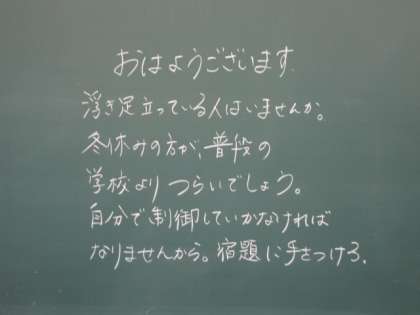 おはようございます.
浮き足立っている人はいませんか。
冬休みの方が、普段の
学校よりつらいでしょう。
自分で制御していかなければ
なりませんから。宿題に手をつけろ.